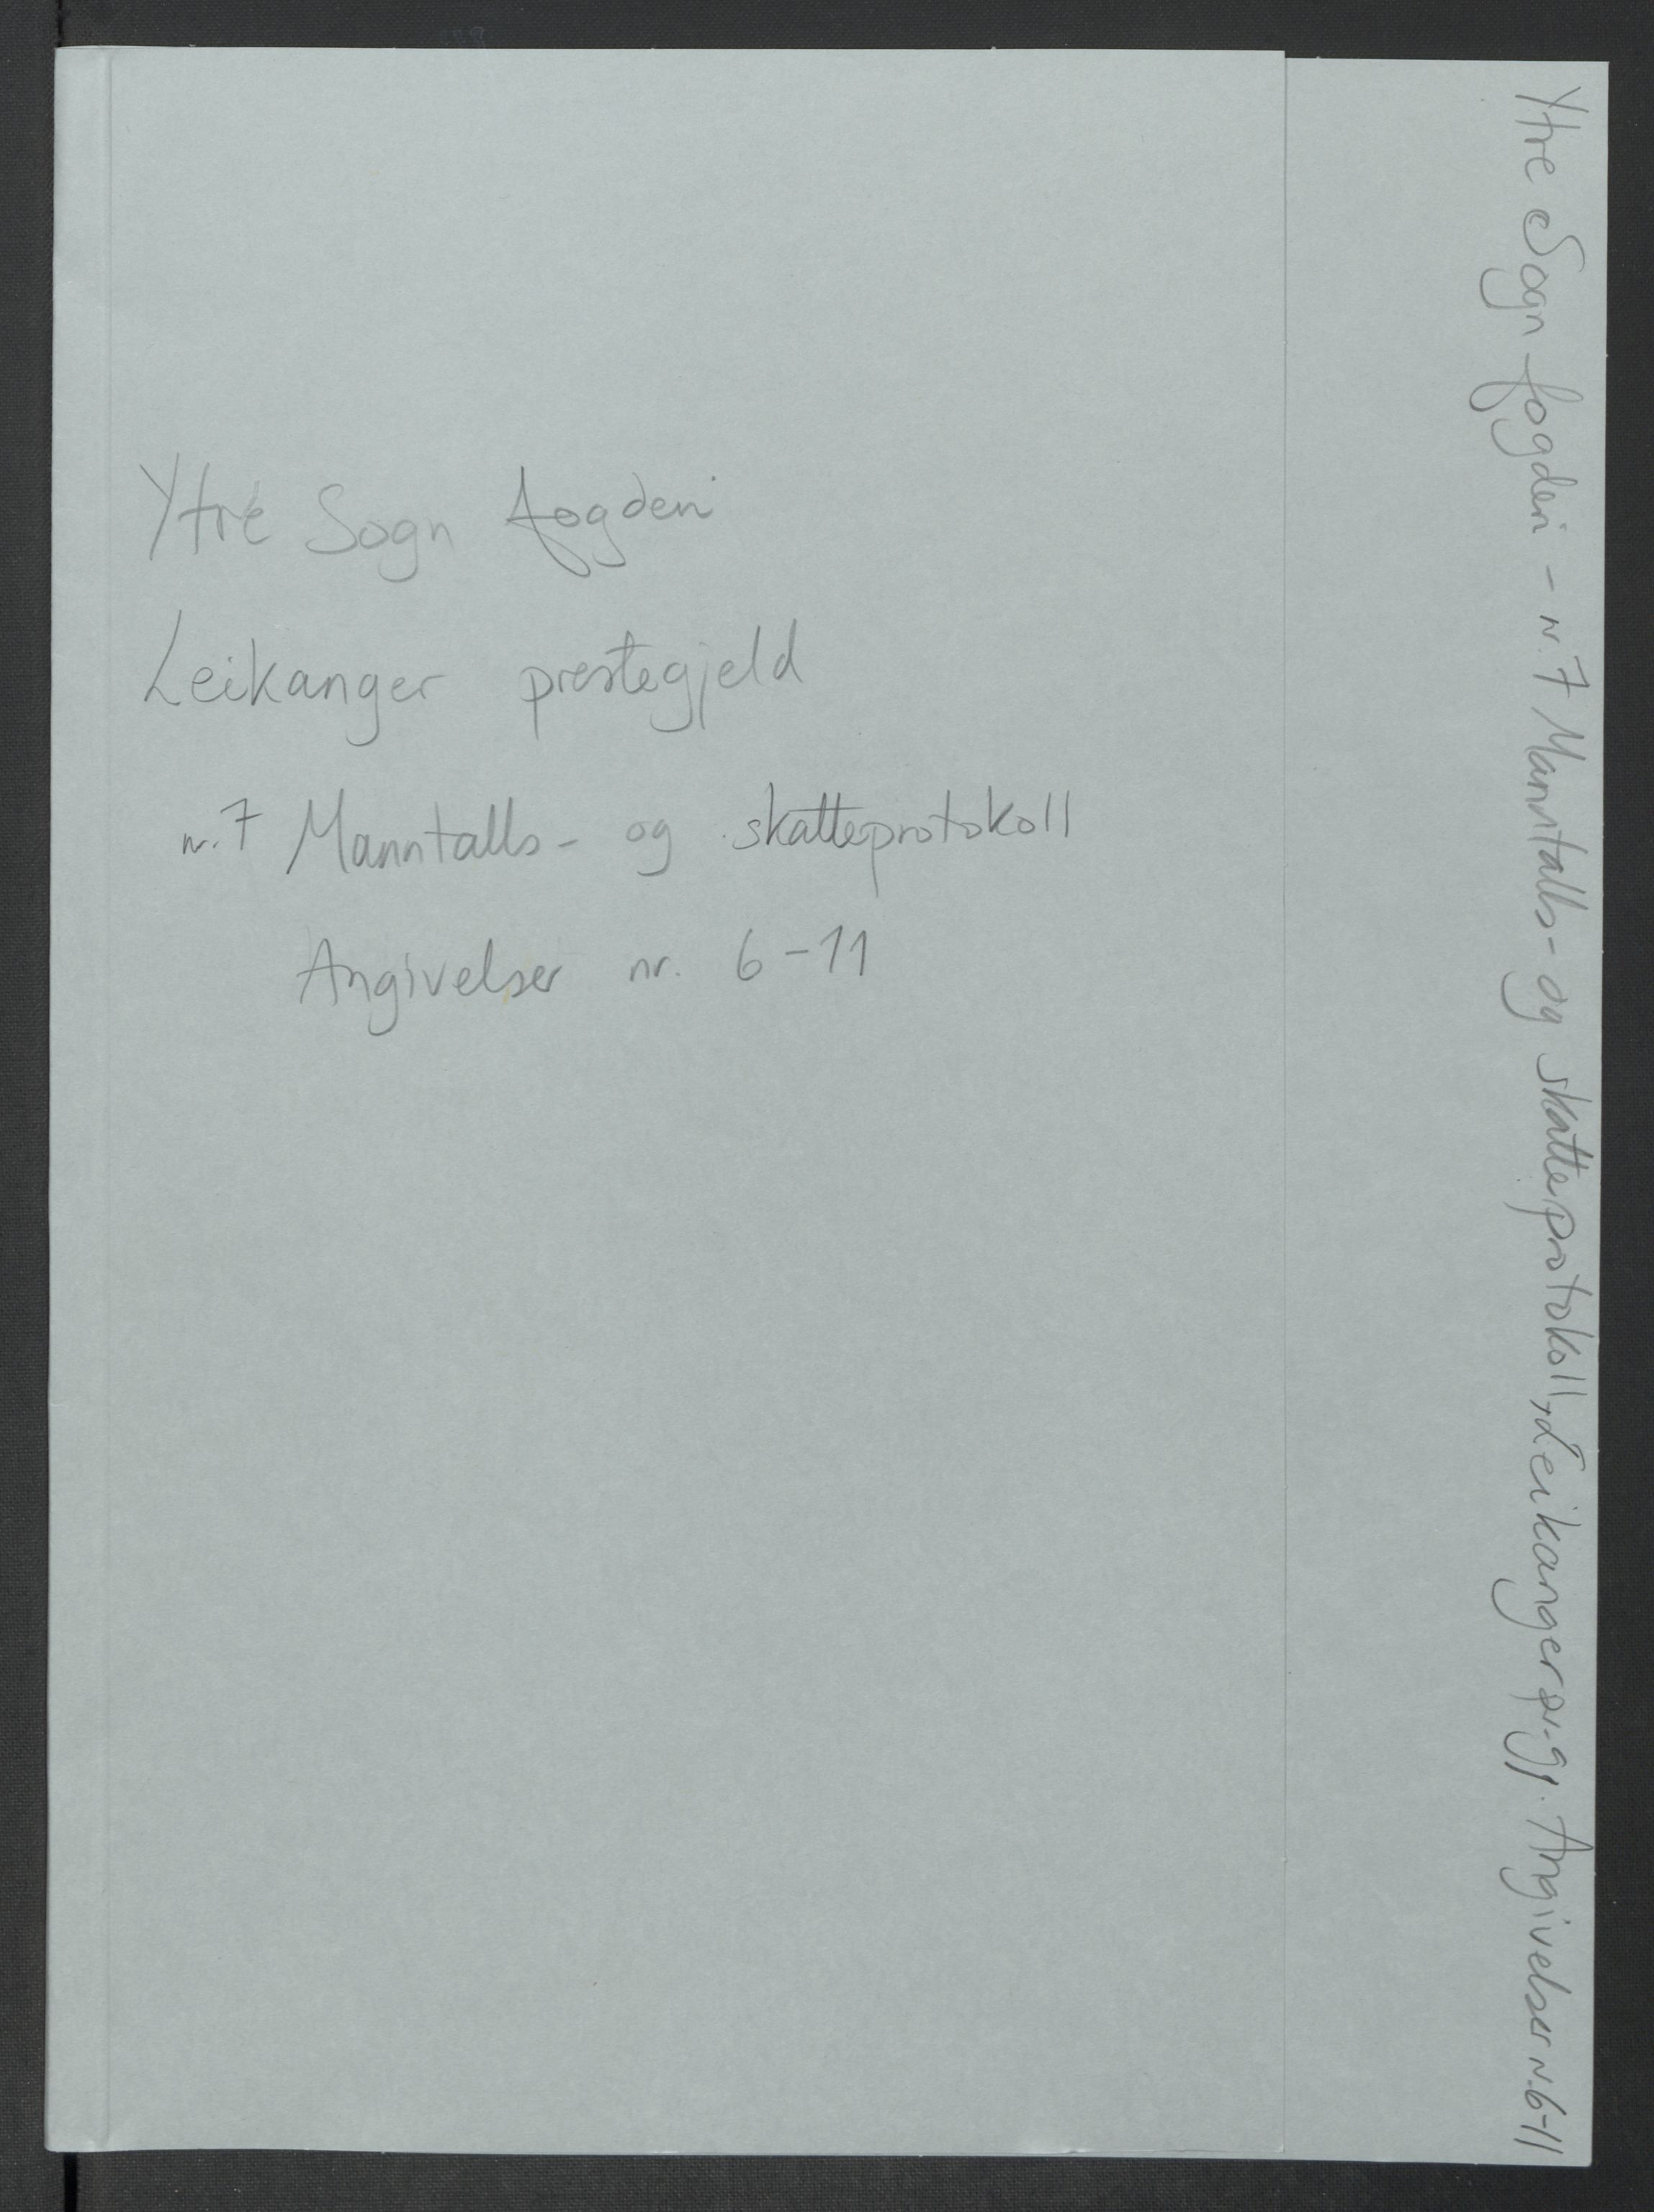 Ytre Sogn fogderi
Leikanger prestegjeld
nr. 7 Manntalls- og skatteprotokoll
Angivelser nr. 6-11
Ytre Sogn fogderi - nr. 7 Manntalls- og skatteprotokoll, Leikanger pr.gj. Angivelser nr. 6-11